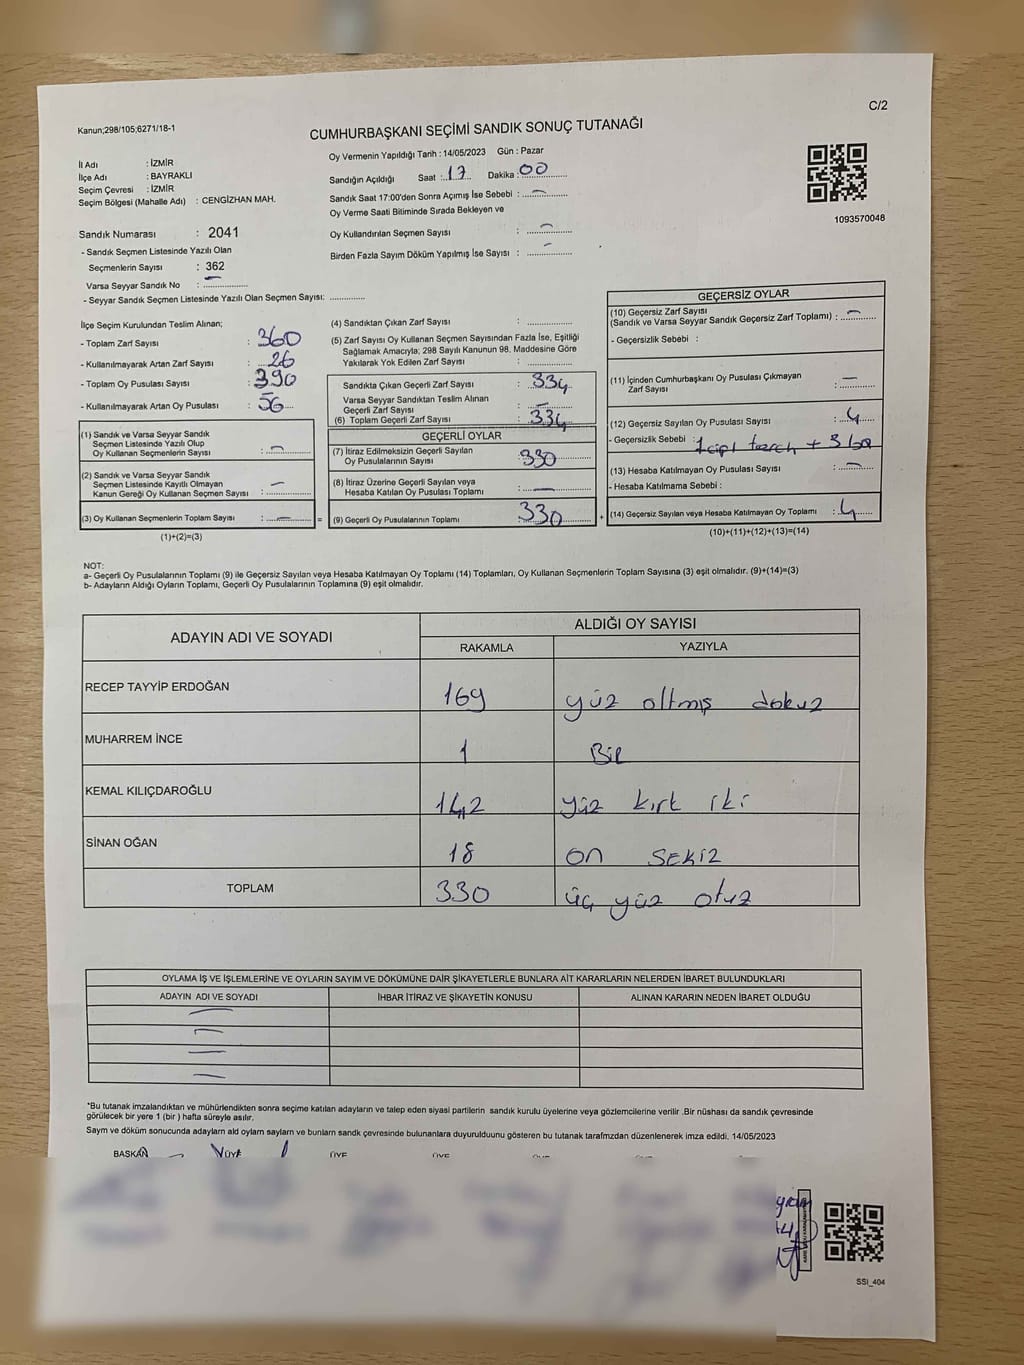 C/2
Kanun;298/105;6271/18-1
CUMHURBAŞKANI SEÇİMİ SANDIK SONUÇ TUTANAĞI
İl Adı : İZMİR
İlçe Adı : BAYRAKLI
Seçim Çevresi : İZMİR
Seçim Bölgesi (Mahalle Adı) : CENGİZHAN MAH.
Oy Vermenin Yapıldığı Tarih : 14/05/2023 Gün : Pazar
Sandığın Açıldığı Saat : 17 Dakika : 00
Sandık Saat 17:00'den Sonra Açımış İse Sebebi : —
Oy Verme Saati Bitiminde Sırada Bekleyen ve
Oy Kullandırılan Seçmen Sayısı : —
Birden Fazla Sayım Döküm Yapılmış İse Sayısı : —
1093570048
Sandık Numarası : 2041
- Sandık Seçmen Listesinde Yazılı Olan
Seçmenlerin Sayısı : 362
Varsa Seyyar Sandık No : —
- Seyyar Sandık Seçmen Listesinde Yazılı Olan Seçmen Sayısı: ............
İlçe Seçim Kurulundan Teslim Alınan;
- Toplam Zarf Sayısı : 360
- Kullanılmayarak Artan Zarf Sayısı : 26
- Toplam Oy Pusulası Sayısı : 390
- Kullanılmayarak Artan Oy Pusulası : 56
(1) Sandık ve Varsa Seyyar Sandık
Seçmen Listesinde Yazılı Olup
Oy Kullanan Seçmenlerin Sayısı : —
(2) Sandık ve Varsa Seyyar Sandık
Seçmen Listesinde Kayıtlı Olmayan
Kanun Gereği Oy Kullanan Seçmen Sayısı : —
(3) Oy Kullanan Seçmenlerin Toplam Sayısı : — =
(1)+(2)=(3)
(4) Sandıktan Çıkan Zarf Sayısı : ............
(5) Zarf Sayısı Oy Kullanan Seçmen Sayısından Fazla İse, Eşitliği
Sağlamak Amacıyla; 298 Sayılı Kanunun 98. Maddesine Göre
Yakılarak Yok Edilen Zarf Sayısı : ............
Sandıkta Çıkan Geçerli Zarf Sayısı : 334
Varsa Seyyar Sandıktan Teslim Alınan
Geçerli Zarf Sayısı : —
(6) Toplam Geçerli Zarf Sayısı : 334
GEÇERLİ OYLAR
(7) İtiraz Edilmeksizin Geçerli Sayılan
Oy Pusulalarının Sayısı : 330
(8) İtiraz Üzerine Geçerli Sayılan veya
Hesaba Katılan Oy Pusulası Toplamı : —
(9) Geçerli Oy Pusulalarının Toplamı : 330 +
GEÇERSİZ OYLAR
(10) Geçersiz Zarf Sayısı
(Sandık ve Varsa Seyyar Sandık Geçersiz Zarf Toplamı) : —
- Geçersizlik Sebebi :
(11) İçinden Cumhurbaşkanı Oy Pusulası Çıkmayan
Zarf Sayısı : —
(12) Geçersiz Sayılan Oy Pusulası Sayısı : 4
- Geçersizlik Sebebi : 1 + 3
(13) Hesaba Katılmayan Oy Pusulası Sayısı : —
- Hesaba Katılmama Sebebi :
(14) Geçersiz Sayılan veya Hesaba Katılmayan Oy Toplamı : 4
(10)+(11)+(12)+(13)=(14)
NOT:
a- Geçerli Oy Pusulalarının Toplamı (9) ile Geçersiz Sayılan veya Hesaba Katılmayan Oy Toplamı (14) Toplamları, Oy Kullanan Seçmenlerin Toplam Sayısına (3) eşit olmalıdır. (9)+(14)=(3)
b- Adayların Aldığı Oyların Toplamı, Geçerli Oy Pusulalarının Toplamına (9) eşit olmalıdır.
ADAYIN ADI VE SOYADI
ALDIĞI OY SAYISI
RAKAMLA YAZIYLA
RECEP TAYYİP ERDOĞAN 169 yüz altmış dokuz
MUHARREM İNCE 1 Bir
KEMAL KILIÇDAROĞLU 142 yüz kırk iki
SİNAN OĞAN 18 on SEKİZ
TOPLAM 330 üç yüz otuz
OYLAMA İŞ VE İŞLEMLERİNE VE OYLARIN SAYIM VE DÖKÜMÜNE DAİR ŞİKAYETLERLE BUNLARA AİT KARARLARIN NELERDEN İBARET BULUNDUKLARI
ADAYIN ADI VE SOYADI İHBAR İTİRAZ VE ŞİKAYETİN KONUSU ALINAN KARARIN NEDEN İBARET OLDUĞU
—
—
—
—
*Bu tutanak imzalandıktan ve mühürlendikten sonra seçime katılan adayların ve talep eden siyasi partilerin sandık kurulu üyelerine veya gözlemcilerine verilir .Bir nüshası da sandık çevresinde
görülecek bir yere 1 (bir ) hafta süreyle asılır.
Saym ve döküm sonucunda adaylarn ald oylarn saylarn ve bunlarn sandk çevresinde bulunanlara duyurulduunu gösteren bu tutanak tarafmzdan düzenlenerek imza edildi. 14/05/2023
BAŞKAN ÜYE ÜYE ÜYE
SSI_404